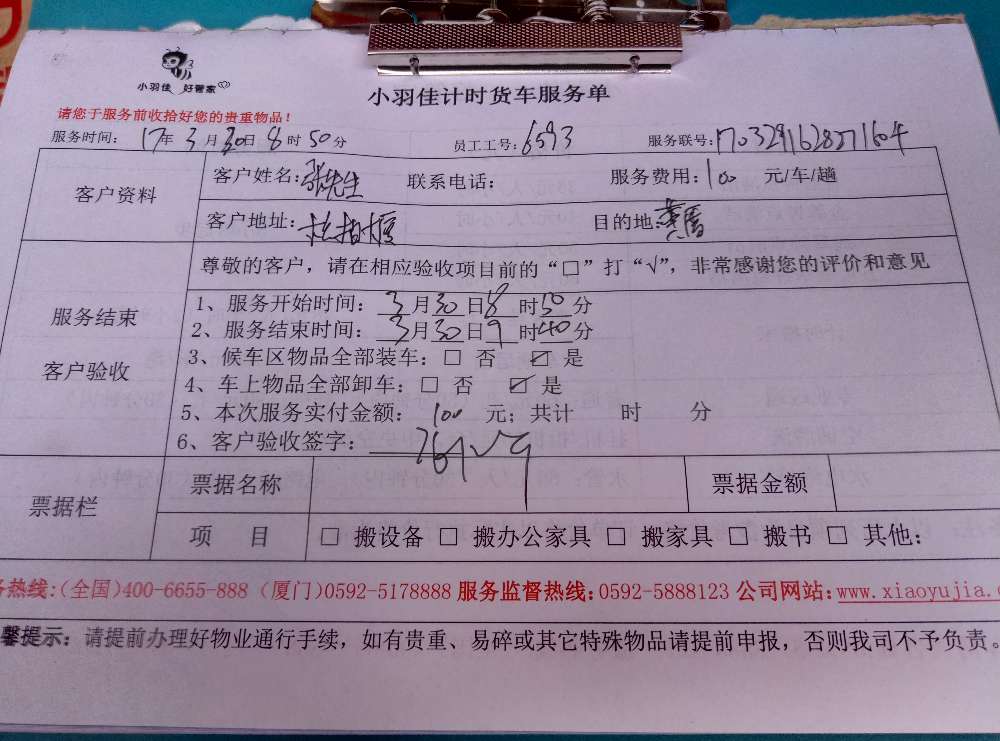 小羽佳 好管家
小羽佳计时货车服务单
请您于服务前收拾好您的贵重物品！
服务时间： 17年 3月30日 8时50分 员工工号：6593 服务联号：
客户资料 客户姓名：张先生 联系电话： 服务费用：100 元/车/趟
客户地址： 目的地：
服务结束 客户验收
尊敬的客户，请在相应验收项目前的“□”打“√”，非常感谢您的评价和意见
1、服务开始时间： 3月30日8时50分
2、服务结束时间： 3月30日9时40分
3、候车区物品全部装车：□ 否 ☑ 是
4、车上物品全部卸车：□ 否 ☑ 是
5、本次服务实付金额： 100 元；共计 时 分
6、客户验收签字：
票据栏 票据名称 票据金额
项 目 □ 搬设备 □ 搬办公家具 □ 搬家具 □ 搬书 □ 其他：
务热线：(全国)400-6655-888 (厦门)0592-5178888 服务监督热线：0592-5888123 公司网站：www.xiaoyujia.c
馨提示：请提前办理好物业通行手续，如有贵重、易碎或其它特殊物品请提前申报，否则我司不予负责。